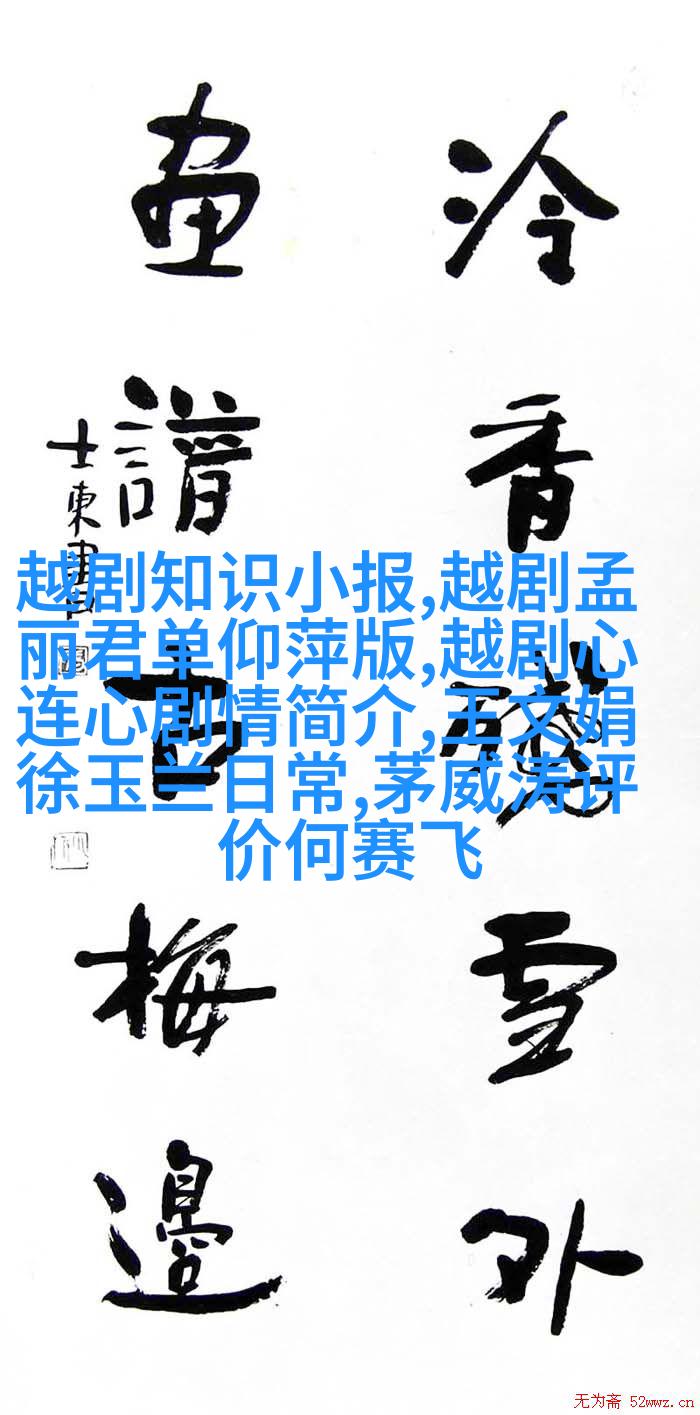 冷香雪外
畫譜梅邊
士東書
越剧知识小报,越剧孟
丽君单仰萍版,越剧心
连心剧情简介,王文娟
徐玉兰日常,茅威涛评
价何赛飞
无为斋 52wwz.cn